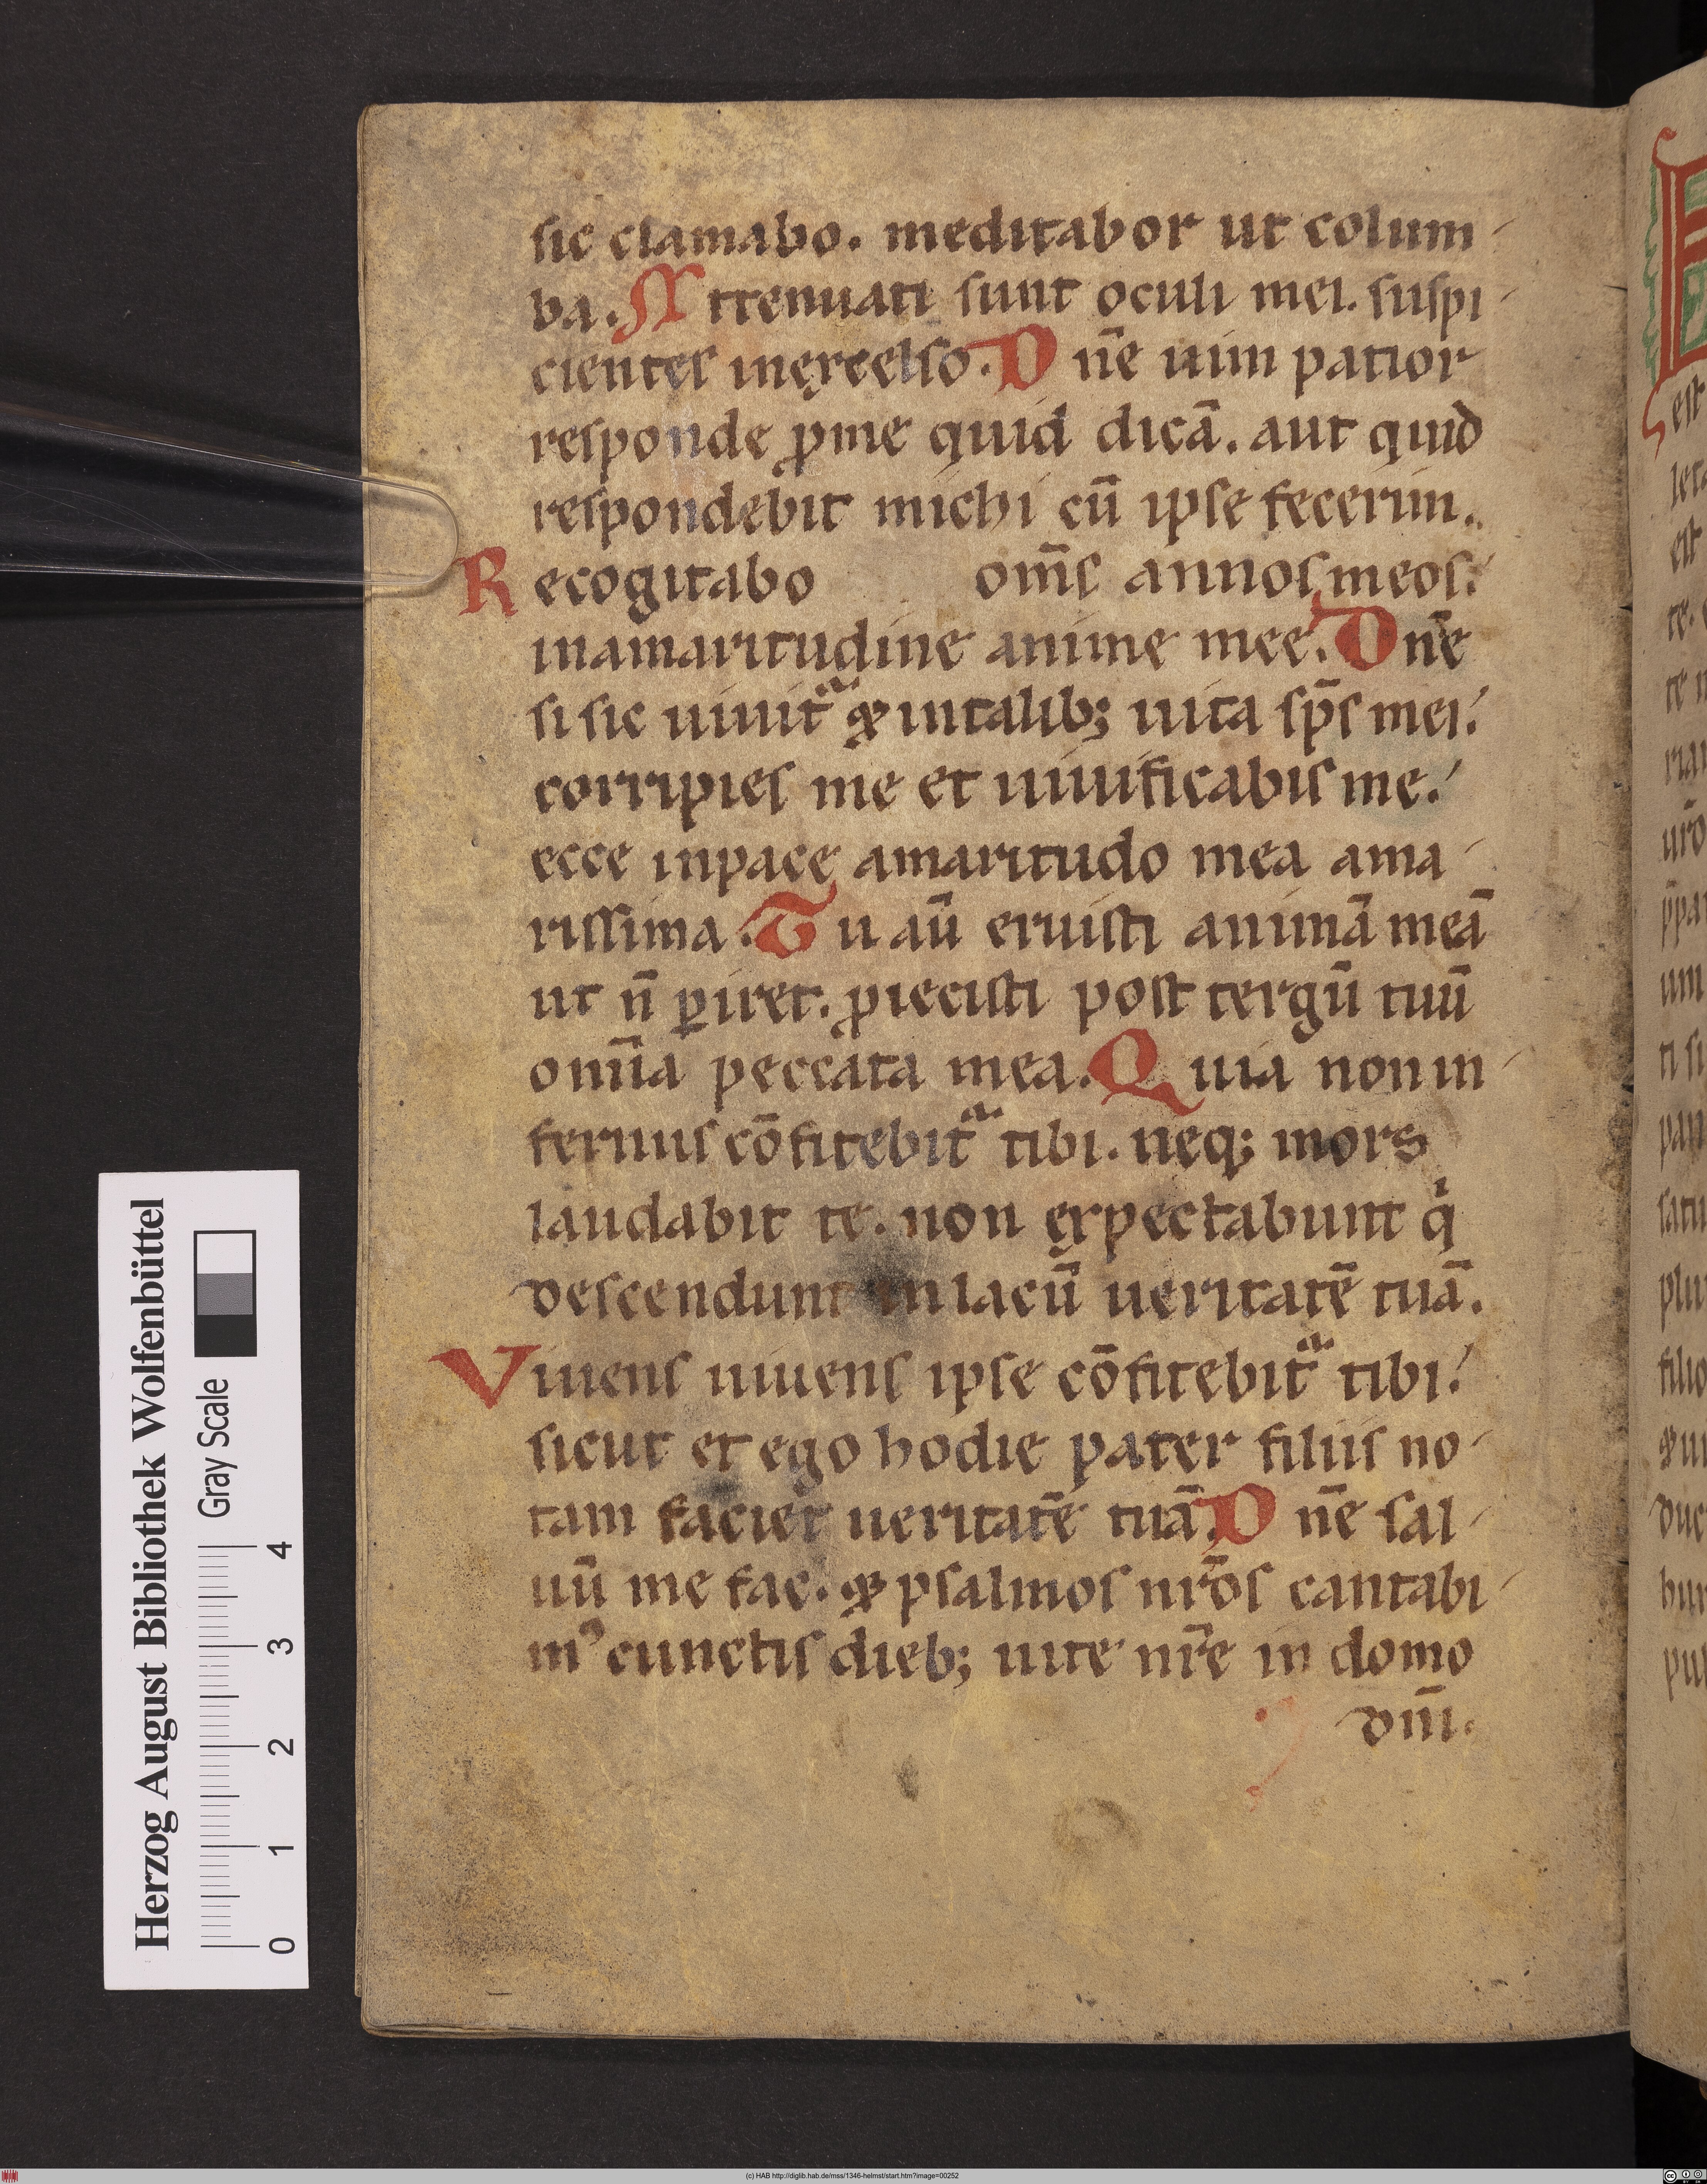 sic clamabo. meditabor ut colum-
ba. Attenuati sunt oculi mei. suspi-
cientes inęxcelso. Dn̄e uim patior
responde ꝓme quid dicā. aut quid
respondebit michi cū ipse fecerim.
Recogitabo om̄s annos meos.
inamaritudine anime mee. Dn̄e
si sic uiuitᵃ & intalib; uita sp̄s mei.
corripies me et uiuificabis me.
ecce inpace amaritudo mea ama-
rissima. Tu aū eruisti animā meā
ut n̄ ꝑiret. ꝓiecisti post tergū tuū
om̄ia peccata mea. Quia non in-
fernus cōfitebitᵃ tibi. neq; mors
laudabit te. non ęxpectabunt qⁱ
descendunt in lacū ueritatē tuā.
Viuens uiuens ipse cōfitebitᵃ tibi.
sicut et ego hodie pater filiis no-
tam faciet ueritatē tuā. Dn̄e sal-
uū me fac. & psalmos nr̄os cantabi-
mꝰ cunctis dieb; uite nr̄e in domo
dn̄i.
est
te.
te n
um
ti si
pan
satu
plu
filio
duc
Herzog August Bibliothek Wolfenbüttel
Gray Scale
0 1 2 3 4
(c) HAB http://diglib.hab.de/mss/1346-helmst/start.htm?image=00252